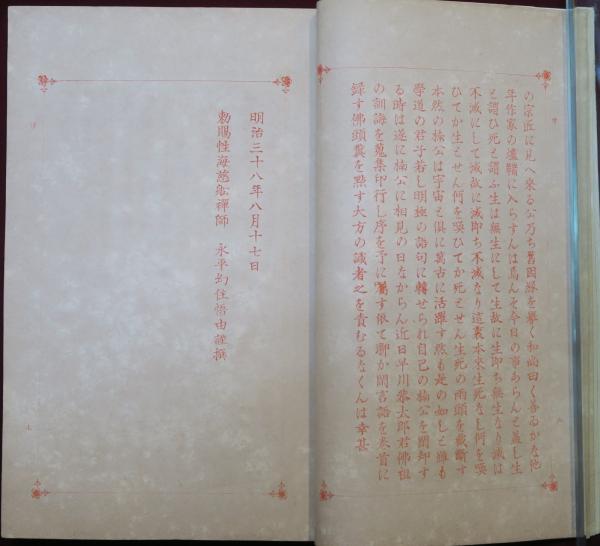 の宗匠に見へ來る公乃ち舊因縁を擧く和尚曰く善ゐかな他
年作家の爐鞴に入らすんは焉んそ今日の事あらんと蓋し生
と謂ひ死と謂ふ生は無生にして生故に生即ち無生なり滅は
不滅にして滅故に滅即ち不滅なり這裏本來生死なし何を喚
ひてか生とせん何を喚ひてか死とせん生死の兩頭を截斷す
本然の楠公は宇宙と倶に萬古に活躍す然も是の如しと雖も
學道の君子若し明極の語句に轉せられ自己の楠公を閑却す
る時は遂に楠公に相見の日なからん近日早川恭太郎君佛祖
の訓誨を蒐集印行し序を予に囑す依て聊か閑言語を巻首に
録す佛頭糞を點す大方の識者之を責むるなくんは幸甚
明治三十八年八月十七日
勅賜性海慈船禪師　永平幻住悟由謹撰